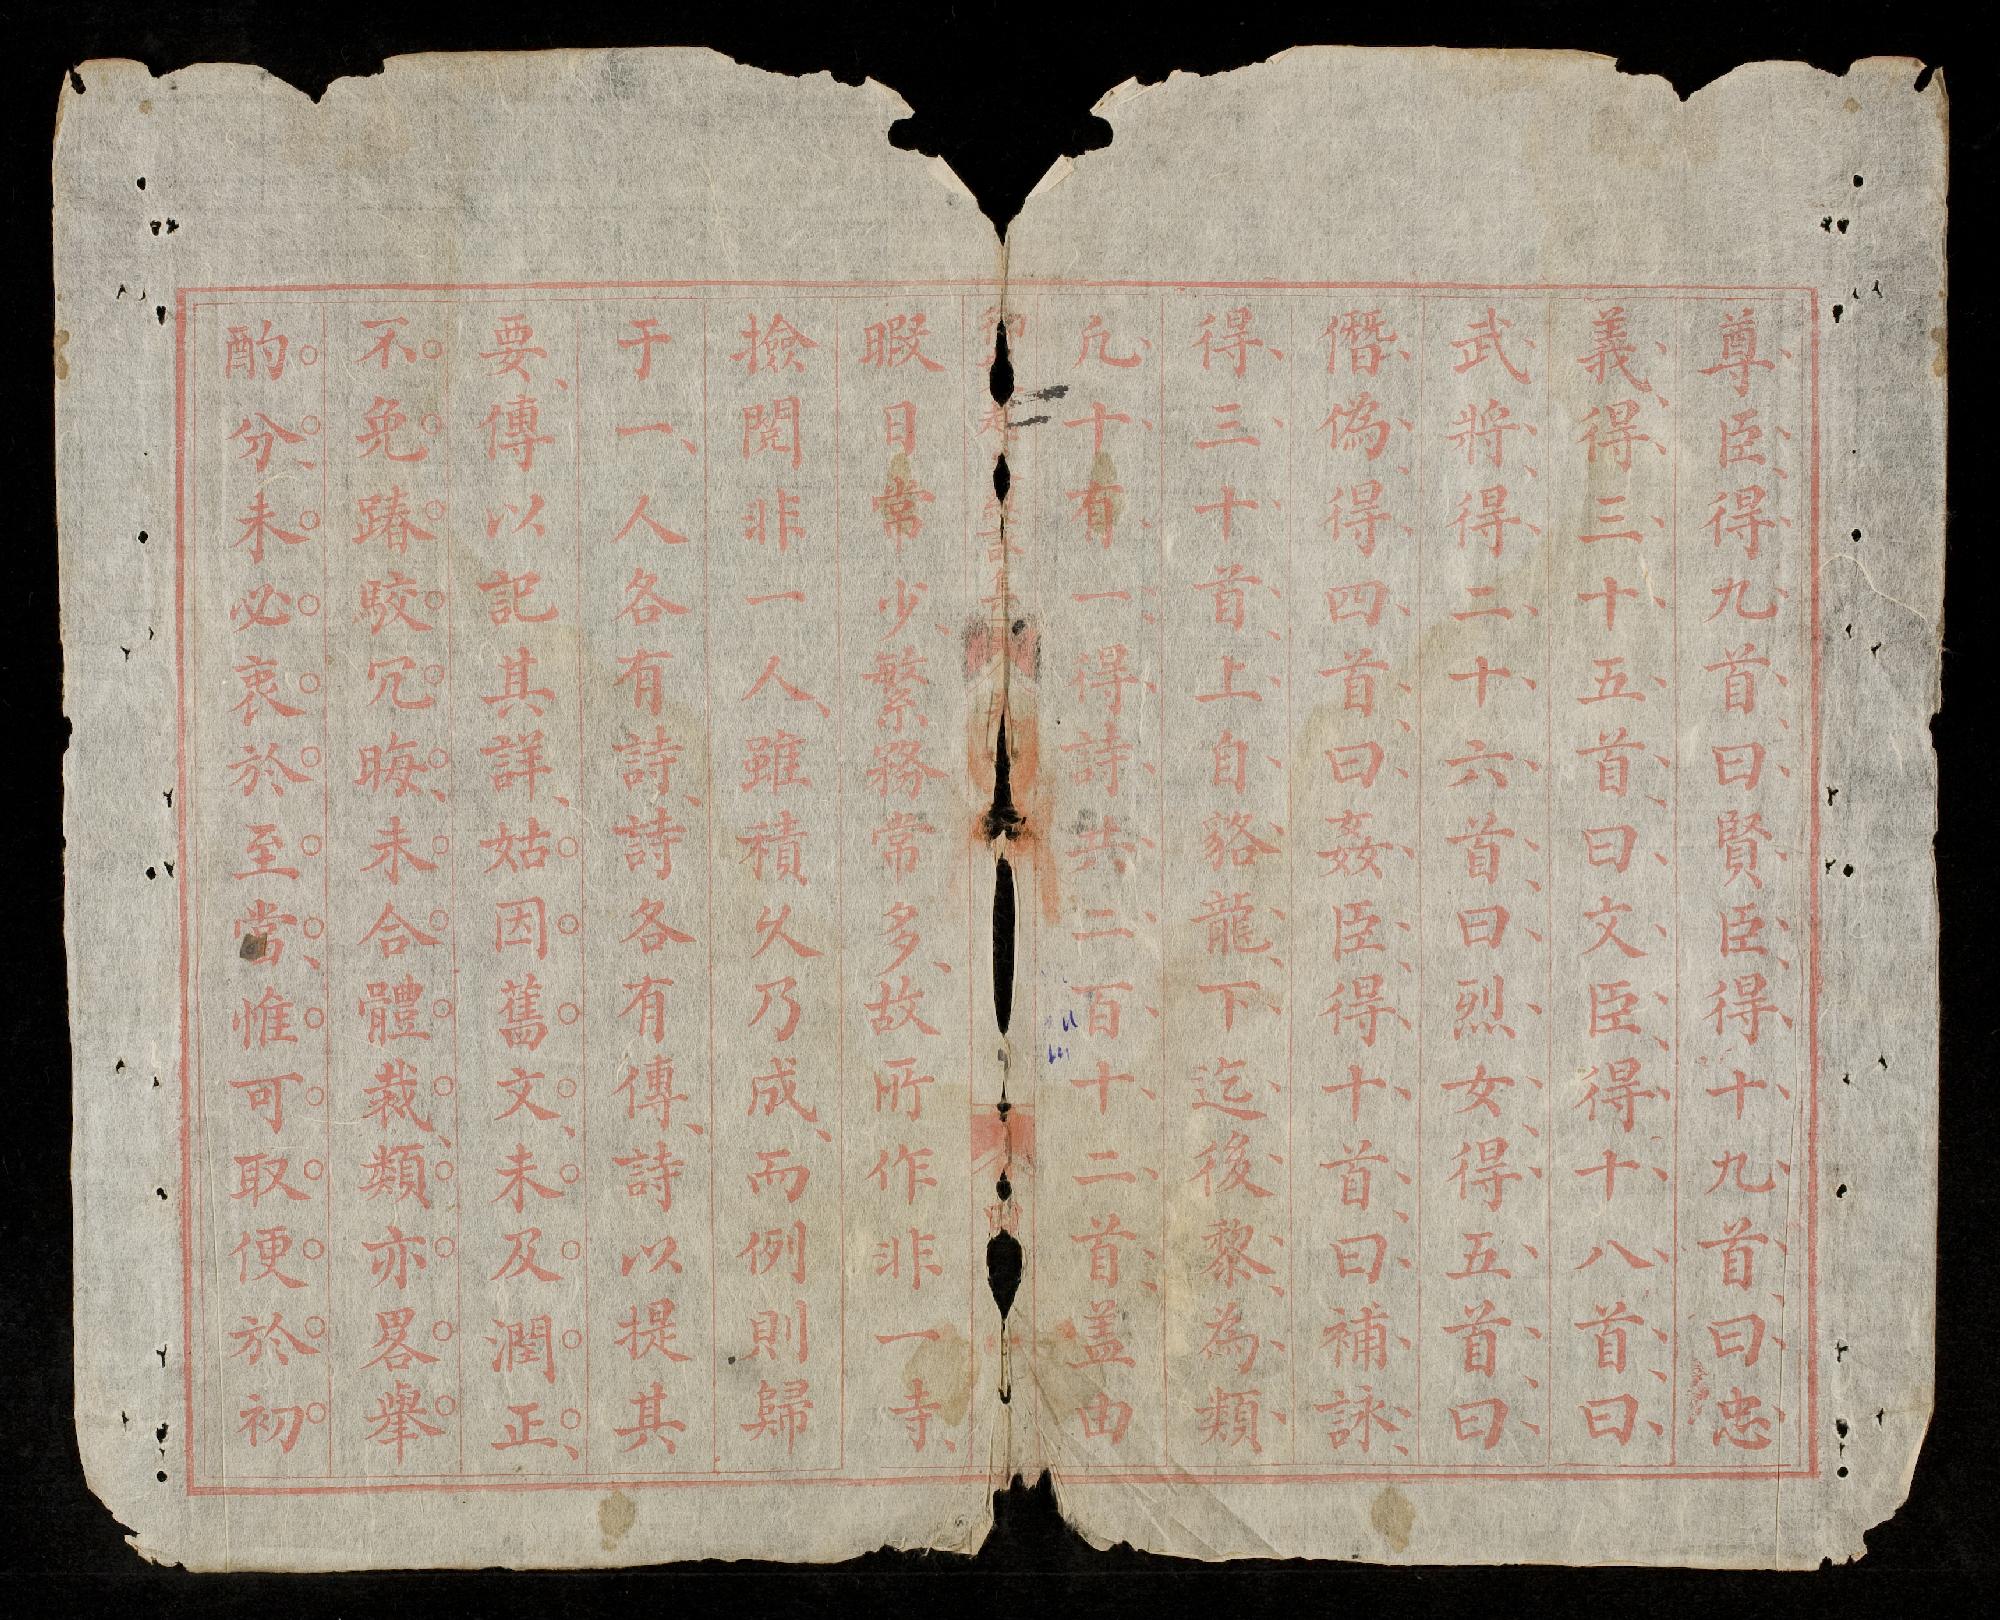 尊臣得九首曰賢臣得十九首曰忠
義得三十五首曰文臣得十八首曰
武將得二十六首曰烈女得五首曰
僭偽得四首曰姦臣得十首曰補詠
得三十首上自貉龍下迄後黎為類
凢十有一得詩共二百十二首盖由
暇日常少繁務常多故所作非一時
撿閱非一人雖積久乃成而例則歸
于一人各有詩詩各有傳詩以提其
要傳以記其詳姑因舊文未及潤正
不免踳駮冗晦未合體裁類亦畧舉
酌分未必衷於至當惟可取便於初